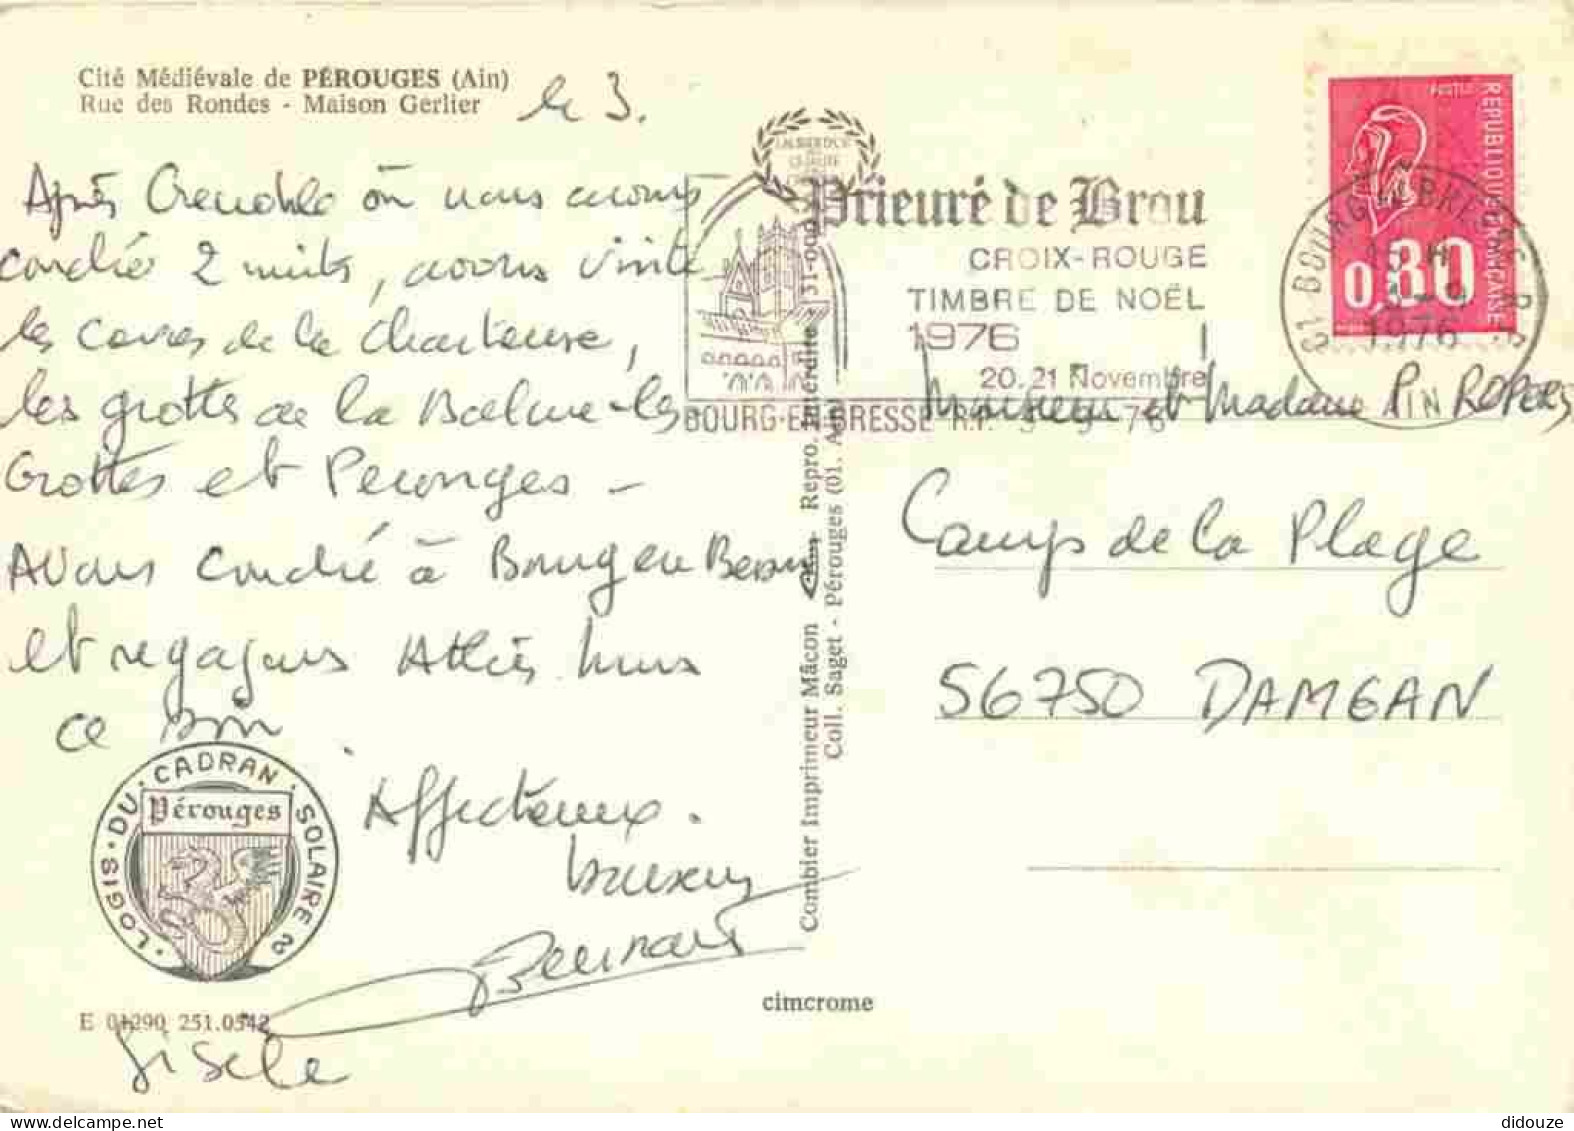 Cité Médiévale de PÉROUGES (Ain)
Rue des Rondes - Maison Gerlier
le 3.
Après Grenoble où nous avons
couché 2 nuits, avons visité
les caves de la Chartreuse,
les grottes de la Balme-les
Grottes et Perouges -
Avons couché à Bourg en Bresse
et regagnons Athis
ce
Affectueux
Bernard
Gisele
LOGIS · DU · CADRAN · SOLAIRE
Pérouges
E 01290 251.0542
cimcrome
Combier Imprimeur Mâcon Repro. Interdite
Coll. Saget - Pérouges (01. Ain)
Prieuré de Brou
CROIX-ROUGE
TIMBRE DE NOËL
1976
20.21 Novembre
BOURG-EN-BRESSE R.P. 3-9-76
POSTES
REPUBLIQUE FRANÇAISE
0,80
01 BOURG EN BRESSE R.P.
1976
AIN
Monsieur et Madame ROPERS
Camp de la Plage
56750 DAMGAN
didouze